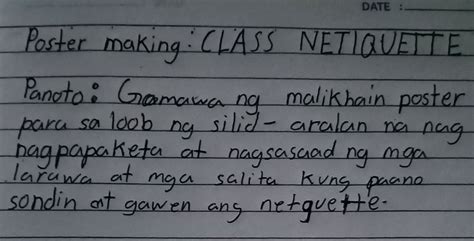 DATE :
Poster making: CLASS NETIQUETTE
Panoto: Gamawa ng malikhain poster
para sa loob ng silid - aralan na nag
nagpapaketa at nagsasaad ng mga
larawa at mga salita kung paano
sondin at gawen ang netquette.